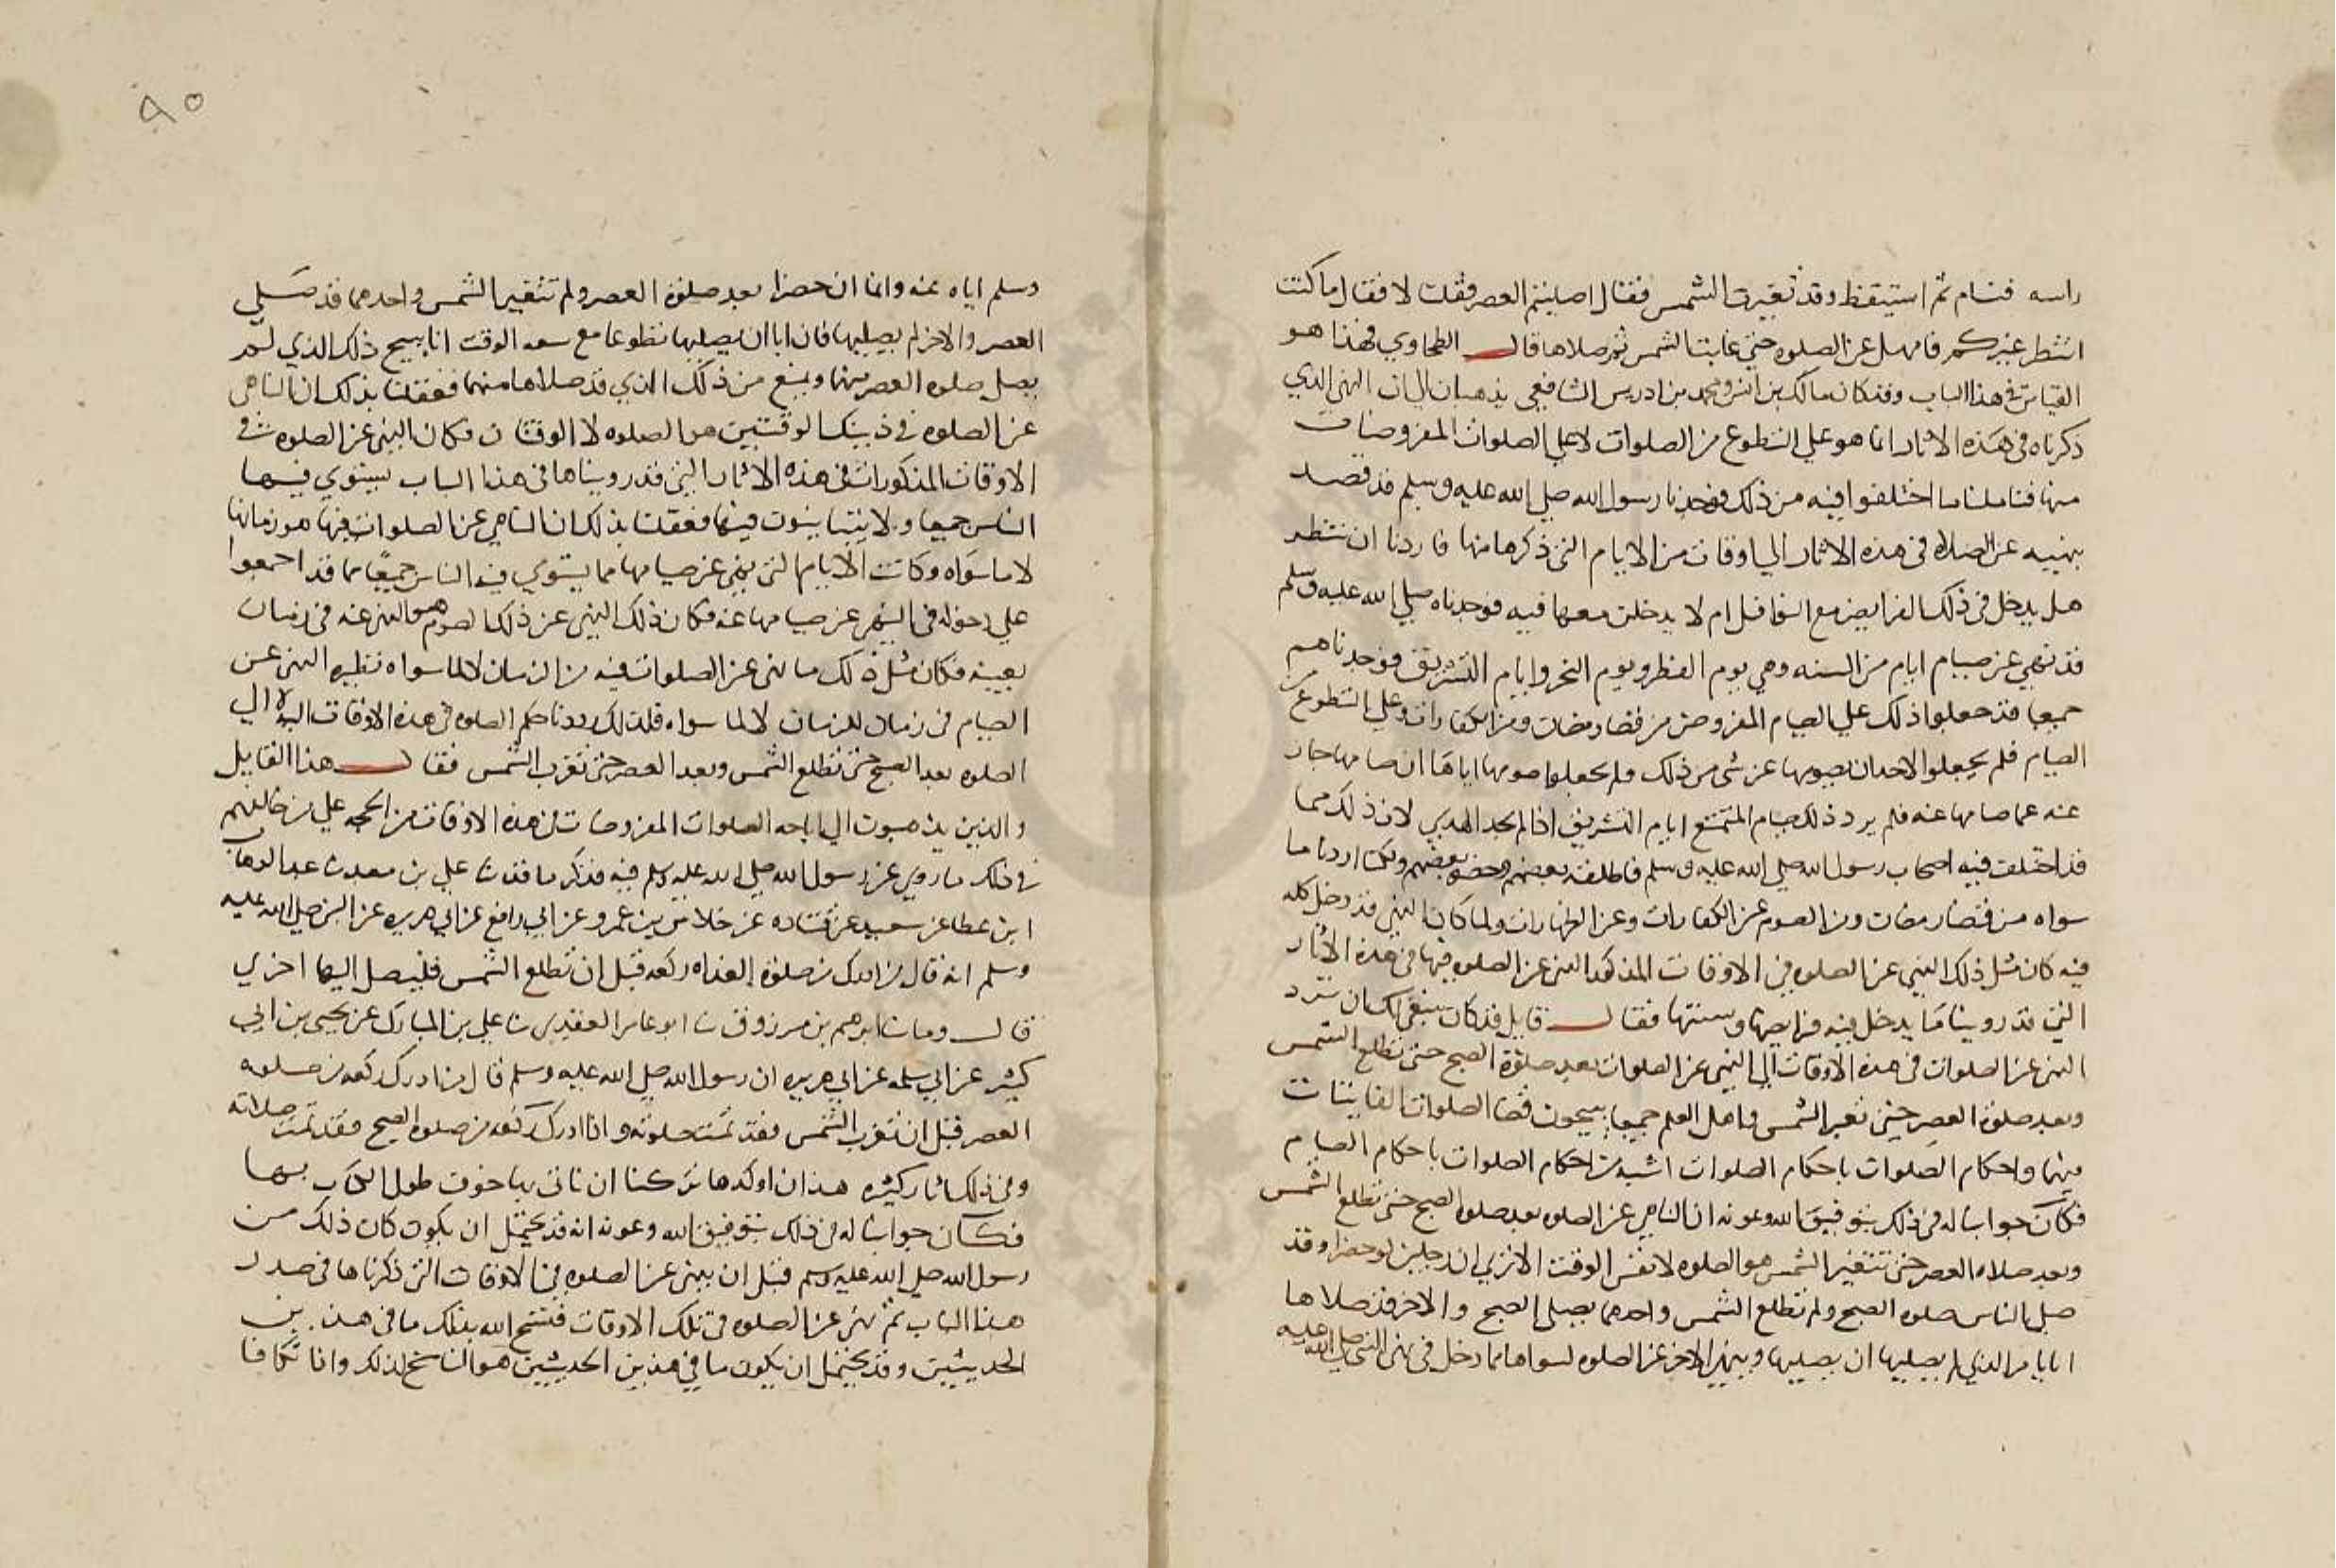 راسه فنام ثم استيقظ وقد تغيرت الشمس فقال اصليتم العصر فقلت لا فقال ما كنت
انتظر غيركم فامهل عن الصلوه حتي غابت الشمس ثم صلاها قال الطحاوي فهذا هو
القياس في هذا الباب وقد كان مالك بن انس ومحمد بن ادريس الشافعي يذهبان الي ان النهي الذي
ذكرناه في هذه الاثار انما هو علي التطوع من الصلوات لا علي الصلوات المفروضات
منها فتاملنا ما اختلفوا فيه من ذلك فوجدنا رسول الله صلي الله عليه وسلم قد قصد
بنهيه عن الصلاة في هذه الاثار الي اوقات من الايام التي ذكرها منها فاردنا ان ننتظر
هل يدخل في ذلك الفرايض مع النوافل ام لا يدخلن معها فيه فوجدناه صلي الله عليه وسلم
قد نهي عن صيام ايام من السنه وهي يوم الفطر ويوم النحر وايام التشريق فوجدناهم
جميعا قد جعلوا ذلك علي الصيام المفروض من قضا رمضان ومن الكفارات وعلي التطوع من
الصيام فلم يجعلوا لاحد ان يصومها عن شي من ذلك ولم يجعلوا صومها اياها ان صامها جاز
عنه عما صامها عنه فلم يرد ذلك صيام المتمتع ايام التشريق اذا لم يجد الهدي لان ذلك مما
قد اختلف فيه اصحاب رسول الله صلي الله عليه وسلم فاطلقه بعضهم وحضره بعضهم ولكنا اردنا ما
سواه من قضا رمضان ومن الصوم عن الكفارات وعن الظهارات ولما كان النهي قد دخل كله
فيه كان مثل ذلك النهي عن الصلوه في الاوقات المذكور النهي عن الصلوه فيها في هذه الاثار
التي قد روينا ما يدخل فيه فرايضها وسننها فقال قايل قد كان ينبغي لك ان ترد
النهي عن الصلوات في هذه الاوقات الي النهي عن الصلوات بعد صلوة الصبح حتي تطلع الشمس
وبعد صلوة العصر حتي تغير الشمس فاهل العلم جميعا يبيحون قضا الصلوات الفايتات
فيها واحكام الصلوات باحكام الصلوات اشبه من احكام الصلوات باحكام الصيام
فكان جوابنا له في ذلك بتوفيق الله وعونه ان الناهي عن الصلوه بعد صلوه الصبح حتي تطلع الشمس
وبعد صلاه العصر حتي تتغير الشمس هو الصلوه لا نفس الوقت الا تري ان رجلين لو حضرا وقد
صلي الناس صلوه الصبح ولم تطلع الشمس واحدهما يصلي الصبح والاخر قد صلاها
انا نامر الذي لم يصليها ان يصليها وينهي الاخر عن الصلوه لسواها مما دخل في نهي النبي صلي الله عليه
٩٥
وسلم اياه عنه وانما ان حضرا بعد صلوة العصر ولم تتغير الشمس واحدهما قد صلي
العصر والاخر لم يصليها فان ابا ان يصليها تطوعا مع سعه الوقت انا نبيح ذلك الذي لم
يصل صلوه العصر منهما ويمنع من ذلك الذي قد صلاها منهما فعقلنا بذلك ان الناهي
عن الصلوه في ذينك الوقتين هو الصلوه لا الوقتان فكان النهي عن الصلوه في
الاوقات المذكورات في هذه الاثار التي قد رويناها في هذا الباب يستوي فيها
الناس جميعا ولا يتباينون فيها فعقلنا بذلك ان الناهي عن الصلوات فيها هو زمانها
لا ما سواه وكانت الايام التي نهي عن صيامها مما يستوي فيه الناس جميعًا مما قد اجمعوا
علي دخوله في النهي عن صيامها عنه فكان ذلك النهي عن ذلك الصوم هو النهي عنه في زمان
بعينه فكان مثل ذلك ما نهي عن الصلوات فيه من الزمان لا لما سواه نظيره النهي عن
الصيام في زمان للزمان لا لما سواه قلت لك رددنا حكم الصلوه في هذه الاوقات اليه لا الي
الصلوه بعد الصبح حتي تطلع الشمس وبعد العصر حتي تغرب الشمس فقال هذا القايل
والذين يذهبون الي اباحه الصلوات المفروضات في هذه الاوقات من الحجه علي من خالفهم
في ذلك ما روي عن رسول الله صلي الله عليه وسلم فيه فذكر ما قد ثنا علي بن معبد ثنا عبد الوهاب
ابن عطا عن سعيد عن قتاده عن خلاس بن عمرو عن ابي رافع عن ابي هريره عن النبي صلي الله عليه
وسلم انه قال من ادرك من صلوة الغداه ركعه قبل ان تطلع الشمس فليصل اليها اخري
قال وما ثنا ابرهيم بن مرزوق ثنا ابو عامر العقدي ثنا علي بن المبارك عن يحيي بن ابي
كثير عن ابي سلمه عن ابي هريره ان رسول الله صلي الله عليه وسلم قال من ادرك ركعه من صلوه
العصر قبل ان تغرب الشمس فقد تمت صلوته واذا ادرك ركعه من صلوه الصبح فقد تمت صلاته
وفي ذلك اثار كثيره هذان اوكدها تركنا ان ناتي بها خوف طول الكتاب بها
فكان جوابنا له في ذلك بتوفيق الله وعونه انه قد يحتمل ان يكون كان ذلك من
رسول الله صلي الله عليه وسلم قبل ان ينهي عن الصلوه في الاوقات التي ذكرناها في صدر
هذا الباب ثم نهي عن الصلوه في تلك الاوقات فنسخ الله بذلك ما في هذين
الحديثين وقد يحتمل ان يكون ما في هذين الحديثين هو الناسخ لذلك واذا تكافا